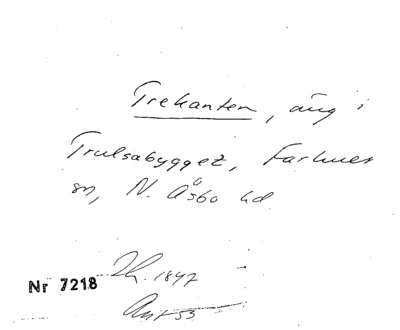 Trekanten, äng i
Trulsabygget, Farhult
sn, N. Åsbo hd
Nr 7218
1847